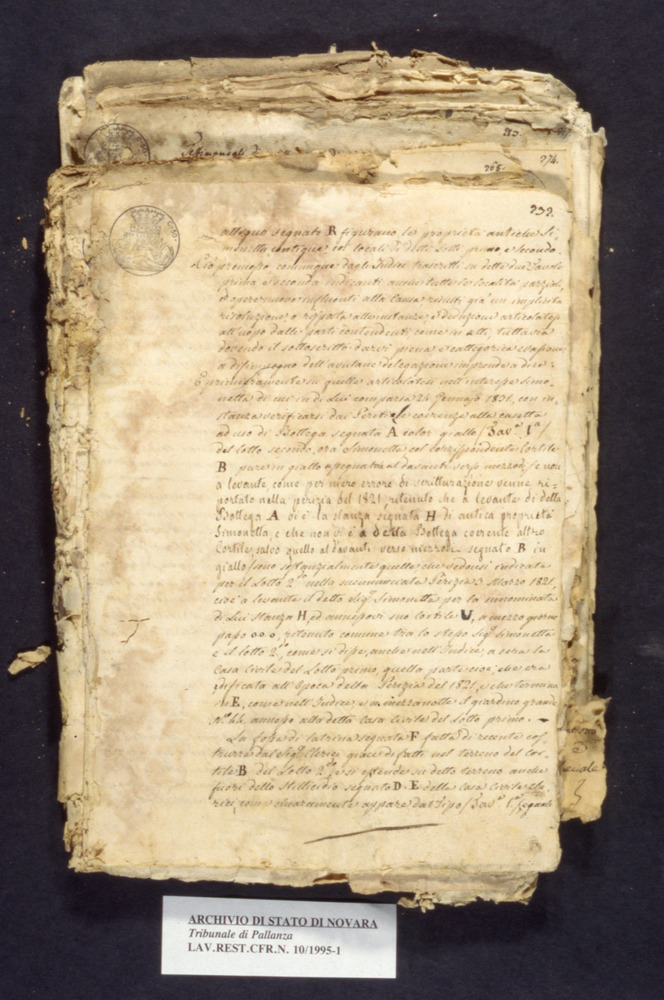 213.
274.
268.
232.
allegno segnato R figurano le proprietà antiche Si-
monetta, contigue coi locali di detti Lotti primo e Secondo.
premesso comunque dagli Indici trascritti su dette due Tavole
prima e seconda indicanti
opere nuove influenti alla Causa
risoluzione, o risposta alle instanze, e deduzioni articolate
all'uopo dalle parti contendenti come in atti, tuttavia
dovendo il sottoscritto darvi piena e cattegorica evasione
a disimpegno dell'avutane delegazione imprende a dire:
E primieramente in quelle articolatesi nell'interesse Simo-
netta di cui in di Lui comparsa 24 Gennajo 1831, con in-
stanza verificarsi dai Periti le coerenze alla casetta
ad uso di Bottega segnata A color giallo (Tav.ª 1.ª)
del Lotto secondo, ora Simonetta col corrispondente Cortile
B pure in giallo assegnatole al davanti verso mezzodì, e non
a levante, come per mero errore di scritturazione venne ri-
portato nella perizia del 1821, ritenuto che a levante di detta
Bottega A vi è la stanza segnata H di antica proprietà
Simonetta, e che non vi è a detta Bottega coerente altro
Cortile, salvo quello al davanti verso mezzodì segnato B in
giallo, sono sostanzialmente quelle che vedonsi indicate
per il Lotto 2.º nella summenovata Perizia 3 Marzo 1821,
cioè a levante il detto Sig.r Simonetta per la sunnominata
di Lui Stanza H, ed annessovi suo cortile V, a mezzo giorno
passo ooo, ritenuto comune tra lo stesso Sig.r Simonetta
e il Lotto 2.º, come si disse, anche nell'Indice, a sera la
Casa Civile del Lotto primo, quella parte cioè, che era
edificata all'Epoca della Perizia del 1821, e che termina
in E, come nell'Indice, e a mezzanotte il giardino grande
N.º 44. annesso alla detta Casa Civile del Lotto primo. —
La fossa di latrina segnata F fatta di recente cos-
trurre dal Sig.r Clerici giace di fatti nel terreno del Cor-
tile B del Lotto 2.º e si estende su detto terreno anche
fuori dello Stillicidio segnato D. E della casa Civile Cle-
rici, come chiaramente appare dal Tipo (Tav.ª 1.ª) segnato
ARCHIVIO DI STATO DI NOVARA
Tribunale di Pallanza
LAV.REST.CFR.N. 10/1995-1